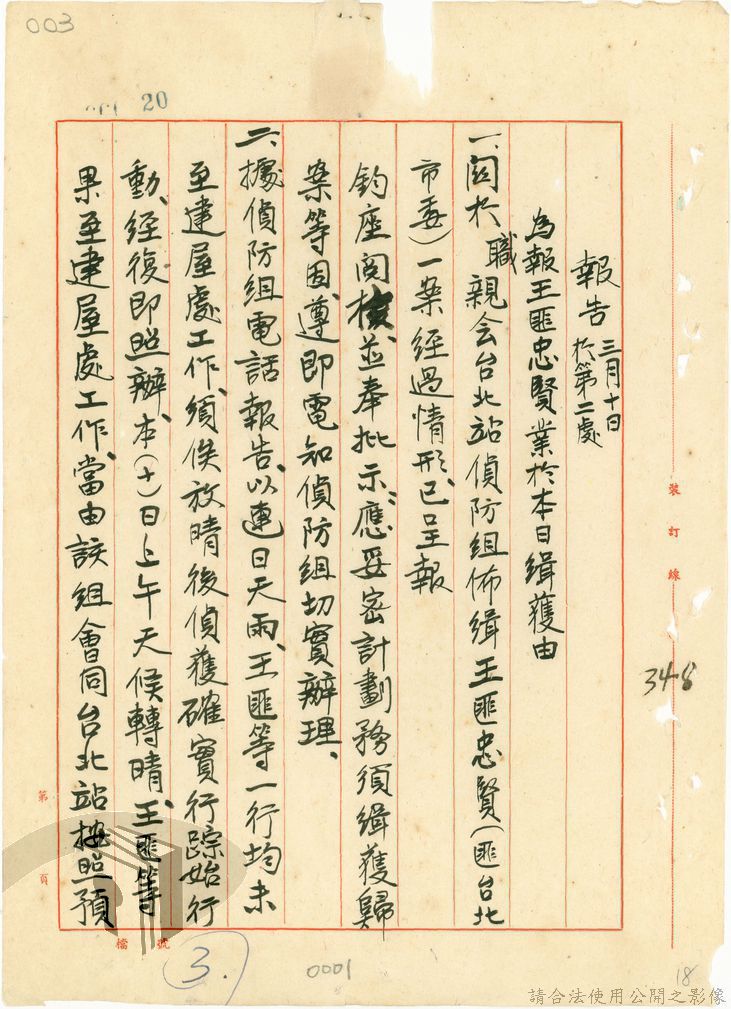 003
20
報告 三月十日
於第二處
為報王匪忠賢業於本日緝獲由
一、関於職親会台北站偵防組佈緝王匪忠賢(匪台北
市委)一案経過情形、已呈報
鈞座阅核、並奉批示:應妥密計劃務須緝獲歸
案等因、遵即電知偵防組切實辦理、
二、據偵防組電話報告、以連日天雨、王匪等一行均未
至建屋處工作、須俟放晴後偵獲確實行踪始行
動、経復即照辦、本(十)日上午天候轉晴、王匪等
果至建屋處工作、當由該組會同台北站按照預
裝訂線
348
第 頁
檔號
3.
0001
18
請合法使用公開之影像